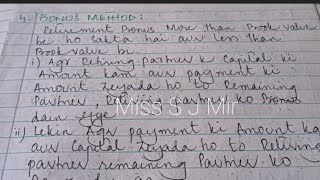 4. BONUS METHOD:
Retirement Bonus More than Book value
bi ho sakta hai aur less than
Book value bi.
i) Agr Retiring partner k Capital ki
Amount kam aur payment ki
Amount zeyada ho to Remaining
Partner, Retiring partner ko Bonus
dain gye
Miss S J Mir
ii) Lekin Agr payment ki Amount kam
aur Capital zeyada ho to Retiring
partner remaining Partner ko